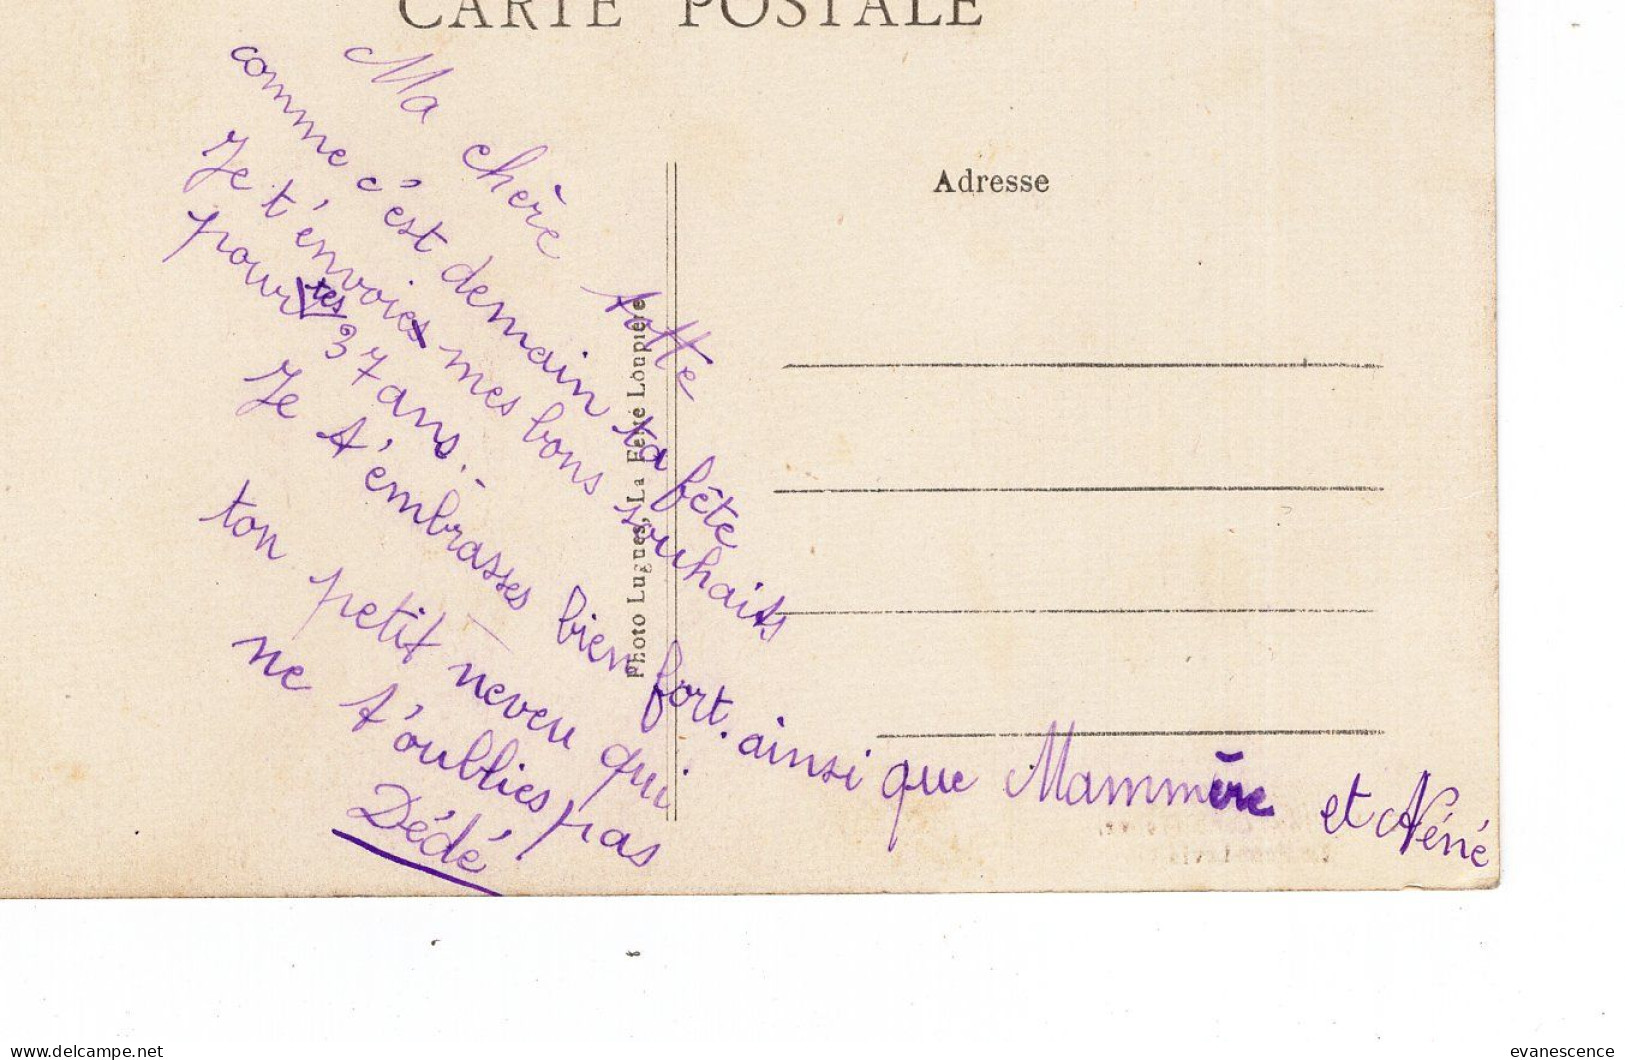 CARTE POSTALE
Ma chère totte
comme c'est demain ta fête
Je t'envoies mes bons souhaits
pour tes 37 ans.
Je t'embrasses bien fort. ainsi que Mammère et Néné
ton petit neveu qui
ne t'oublies pas
Dédé
Photo Lugues, La Ferté Loupière
Adresse
delcampe.net
evanescence